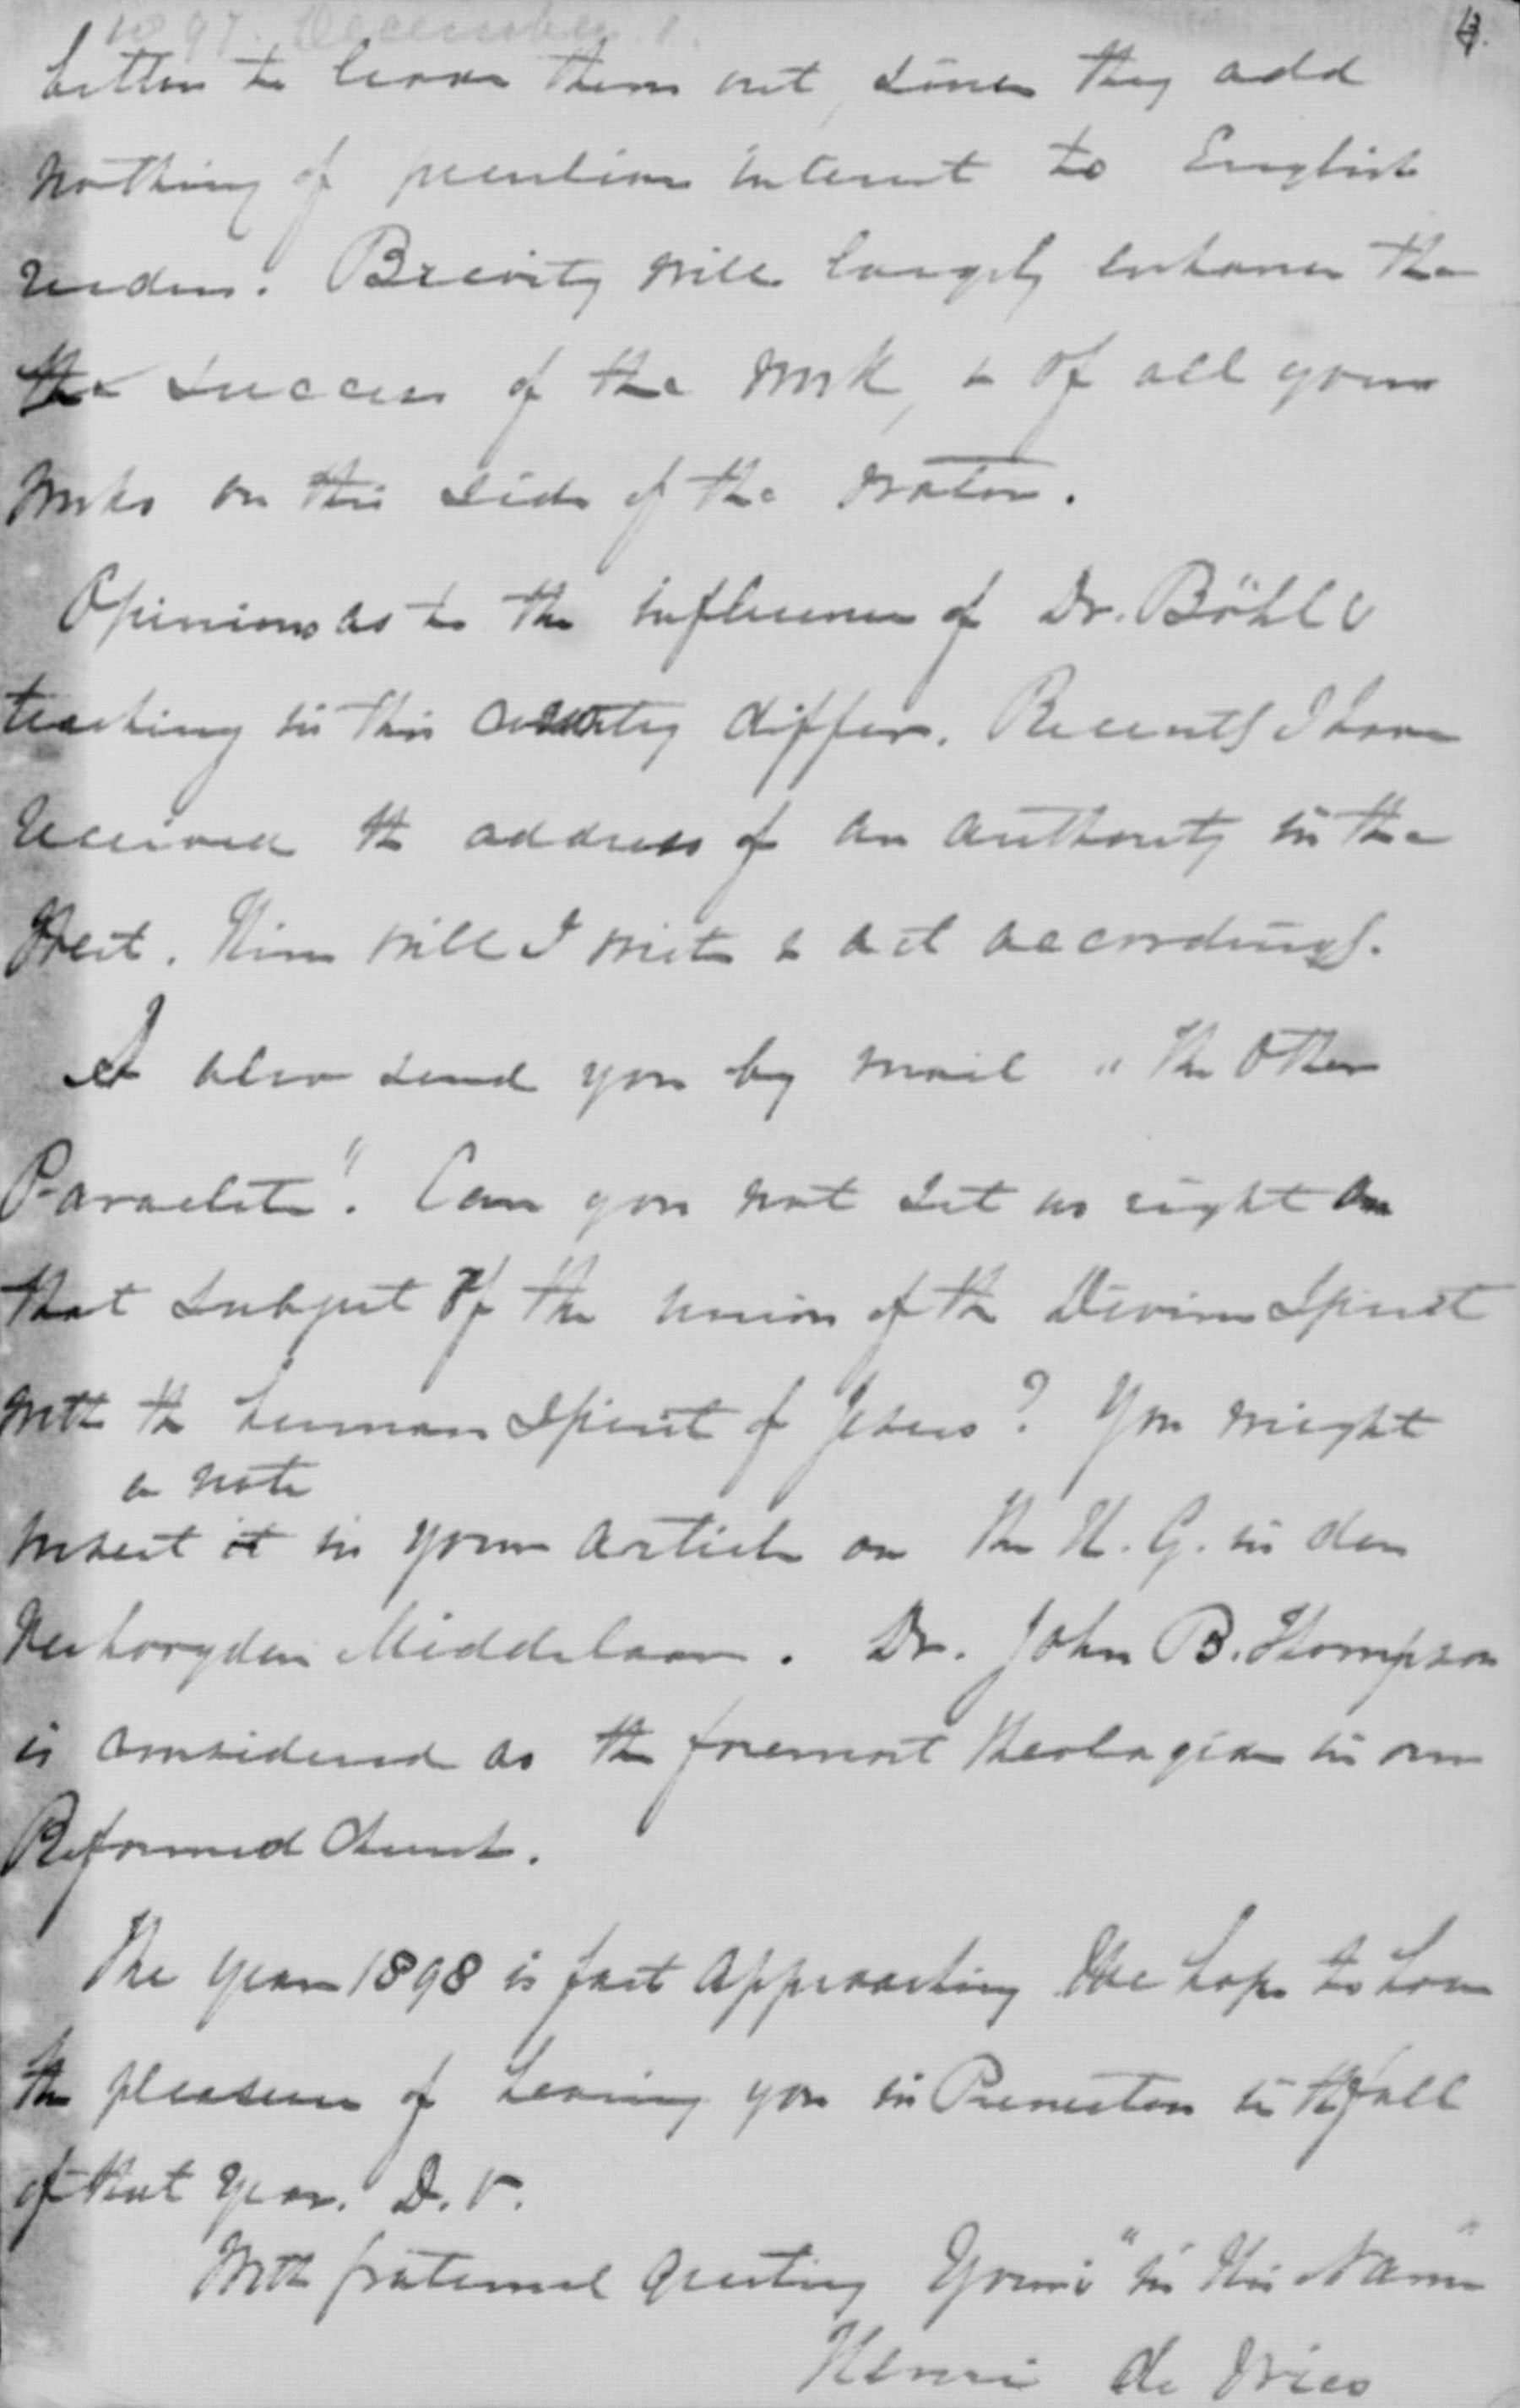 1897. December 1.
13.
better to leave them out, since they add
nothing of peculiar interest to English
readers. Brevity will largely enhance the
the success of the work, & of all your
works on this side of the water.
Opinions as to the influence of Dr. Böhl's
teaching in this country differ. Recently I have
received the address of an authority in the
West. Him will I write & act accordingly.
I also send you by mail "The Other
Paraclete". Can you not set us right on
that subject of the union of the Divine Spirit
with the human Spirit of Jesus? You might
a note
insert it in your article on the H. G. in den
Verhoogden Middelaar. Dr. John B. Thompson
is considered as the foremost theologian in our
Reformed Church.
The year 1898 is fast approaching We hope to have
the pleasure of hearing you in Princeton in the fall
of that year. D. V.
With fraternal greeting Yours "in His Name"
Henri de Vries